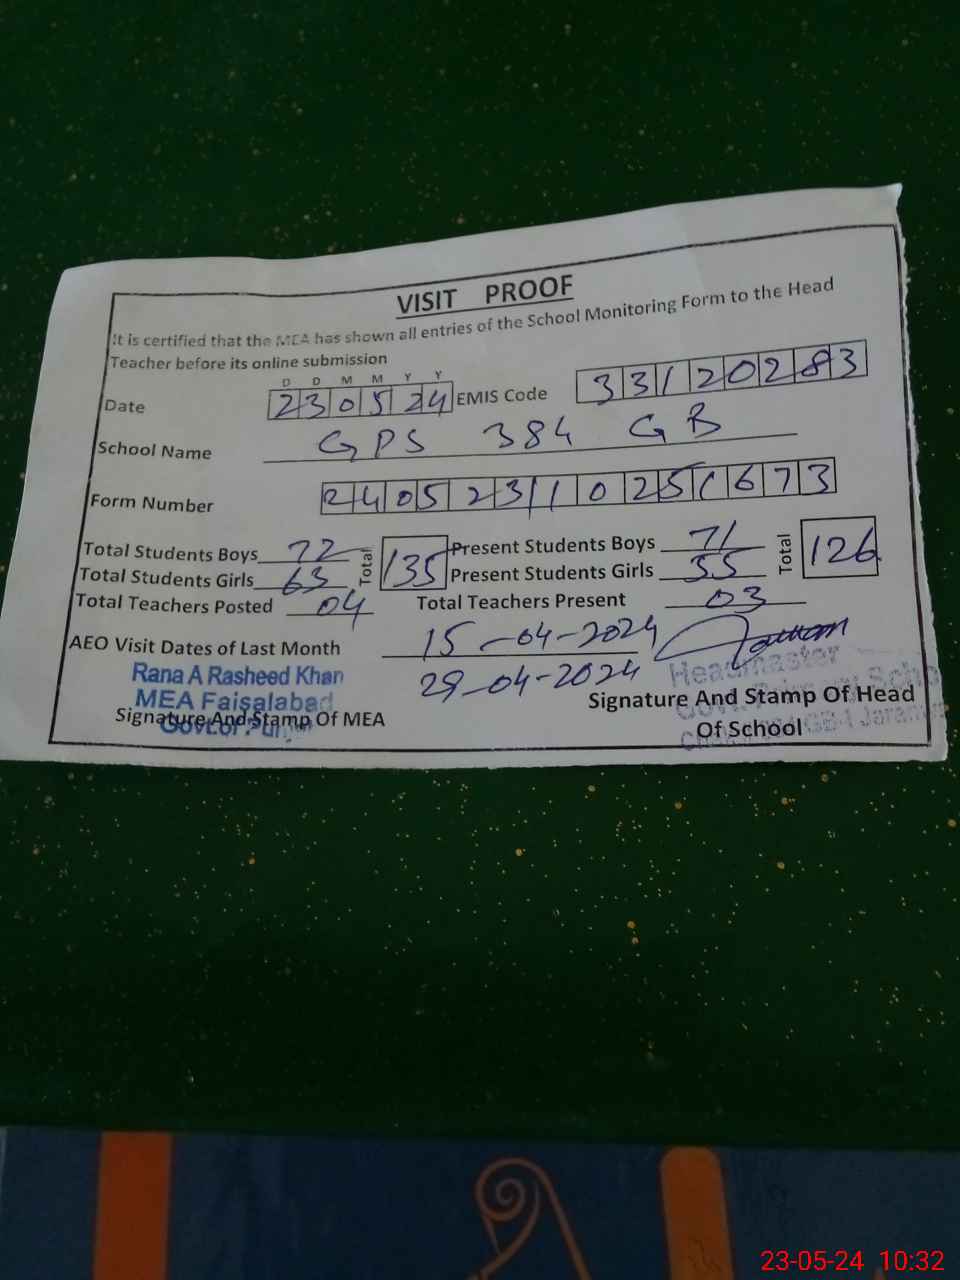 VISIT PROOF
It is certified that the MEA has shown all entries of the School Monitoring Form to the Head
Teacher before its online submission
D D M M Y Y
Date 230524 EMIS Code 33120283
School Name GPS 384 GB
Form Number 240523110251673
Total Students Boys 72 Total 135 Present Students Boys 71 Total 126
Total Students Girls 63 Present Students Girls 55
Total Teachers Posted 04 Total Teachers Present 03
AEO Visit Dates of Last Month 15-04-2024
29-04-2024
Rana A Rasheed Khan
MEA Faisalabad
Govt. of
Signature And Stamp Of MEA
Headmaster
Govt. Primary
Signature And Stamp Of Head
Of School
23-05-24 10:32